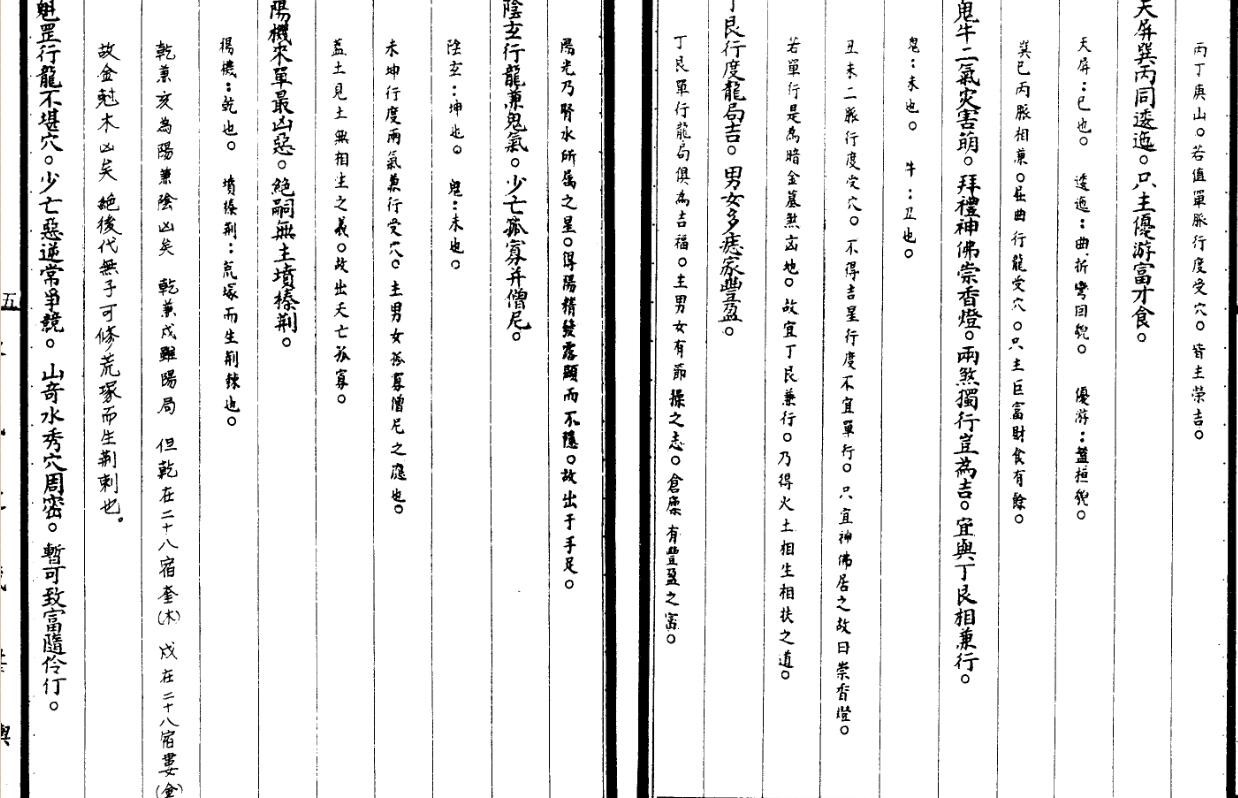 丙丁庚山。若值單脈行度受穴。皆主榮吉。
天屏巽丙同逶迤。只主優游富才食。
天屏：巳也。　逶迤：曲折彎回貌。　優游：盤桓貌。
巽巳丙脈相兼。屈曲行龍受穴。只主巨富財食有餘。
鬼牛二氣災害萌。拜禮神佛崇香燈。兩煞獨行豈為吉。宜與丁艮相兼行。
鬼：未也。　牛：丑也。
丑未二脈行度受穴。不得吉星行度不宜單行。只宜神佛居之故曰崇香燈。
若單行是為暗金墓煞凶地。故宜丁艮兼行。乃得火土相生相扶之道。
丁艮行度龍局吉。男女多痣家豐盈。
丁艮單行龍局俱為吉福。主男女有節操之志。倉廩有豐盈之富。
陽光乃腎水所属之星。得陽精發露顯而不隱。故出于手足。
陰玄行龍兼鬼氣。少亡孤寡并僧尼。
陰玄：坤也。　鬼：未也。
未坤行度兩氣兼行受穴。主男女孤寡僧尼之應也。
蓋土見土無相生之義。故出夭亡孤寡。
陽機來單最凶惡。絕嗣無主墳榛荆。
楊機：乾也。　墳榛荆：荒塚而生荆棘也。
乾兼亥為陽兼陰凶矣　乾兼戌雖陽局　但乾在二十八宿奎(木)　戌在二十八宿婁(金)
故金尅木凶矣　絕後代無子可修荒塚而生荆刺也.
魁罡行龍不堪穴。少亡惡逆常爭競。山奇水秀穴周密。暫可致富隨伶仃。
五